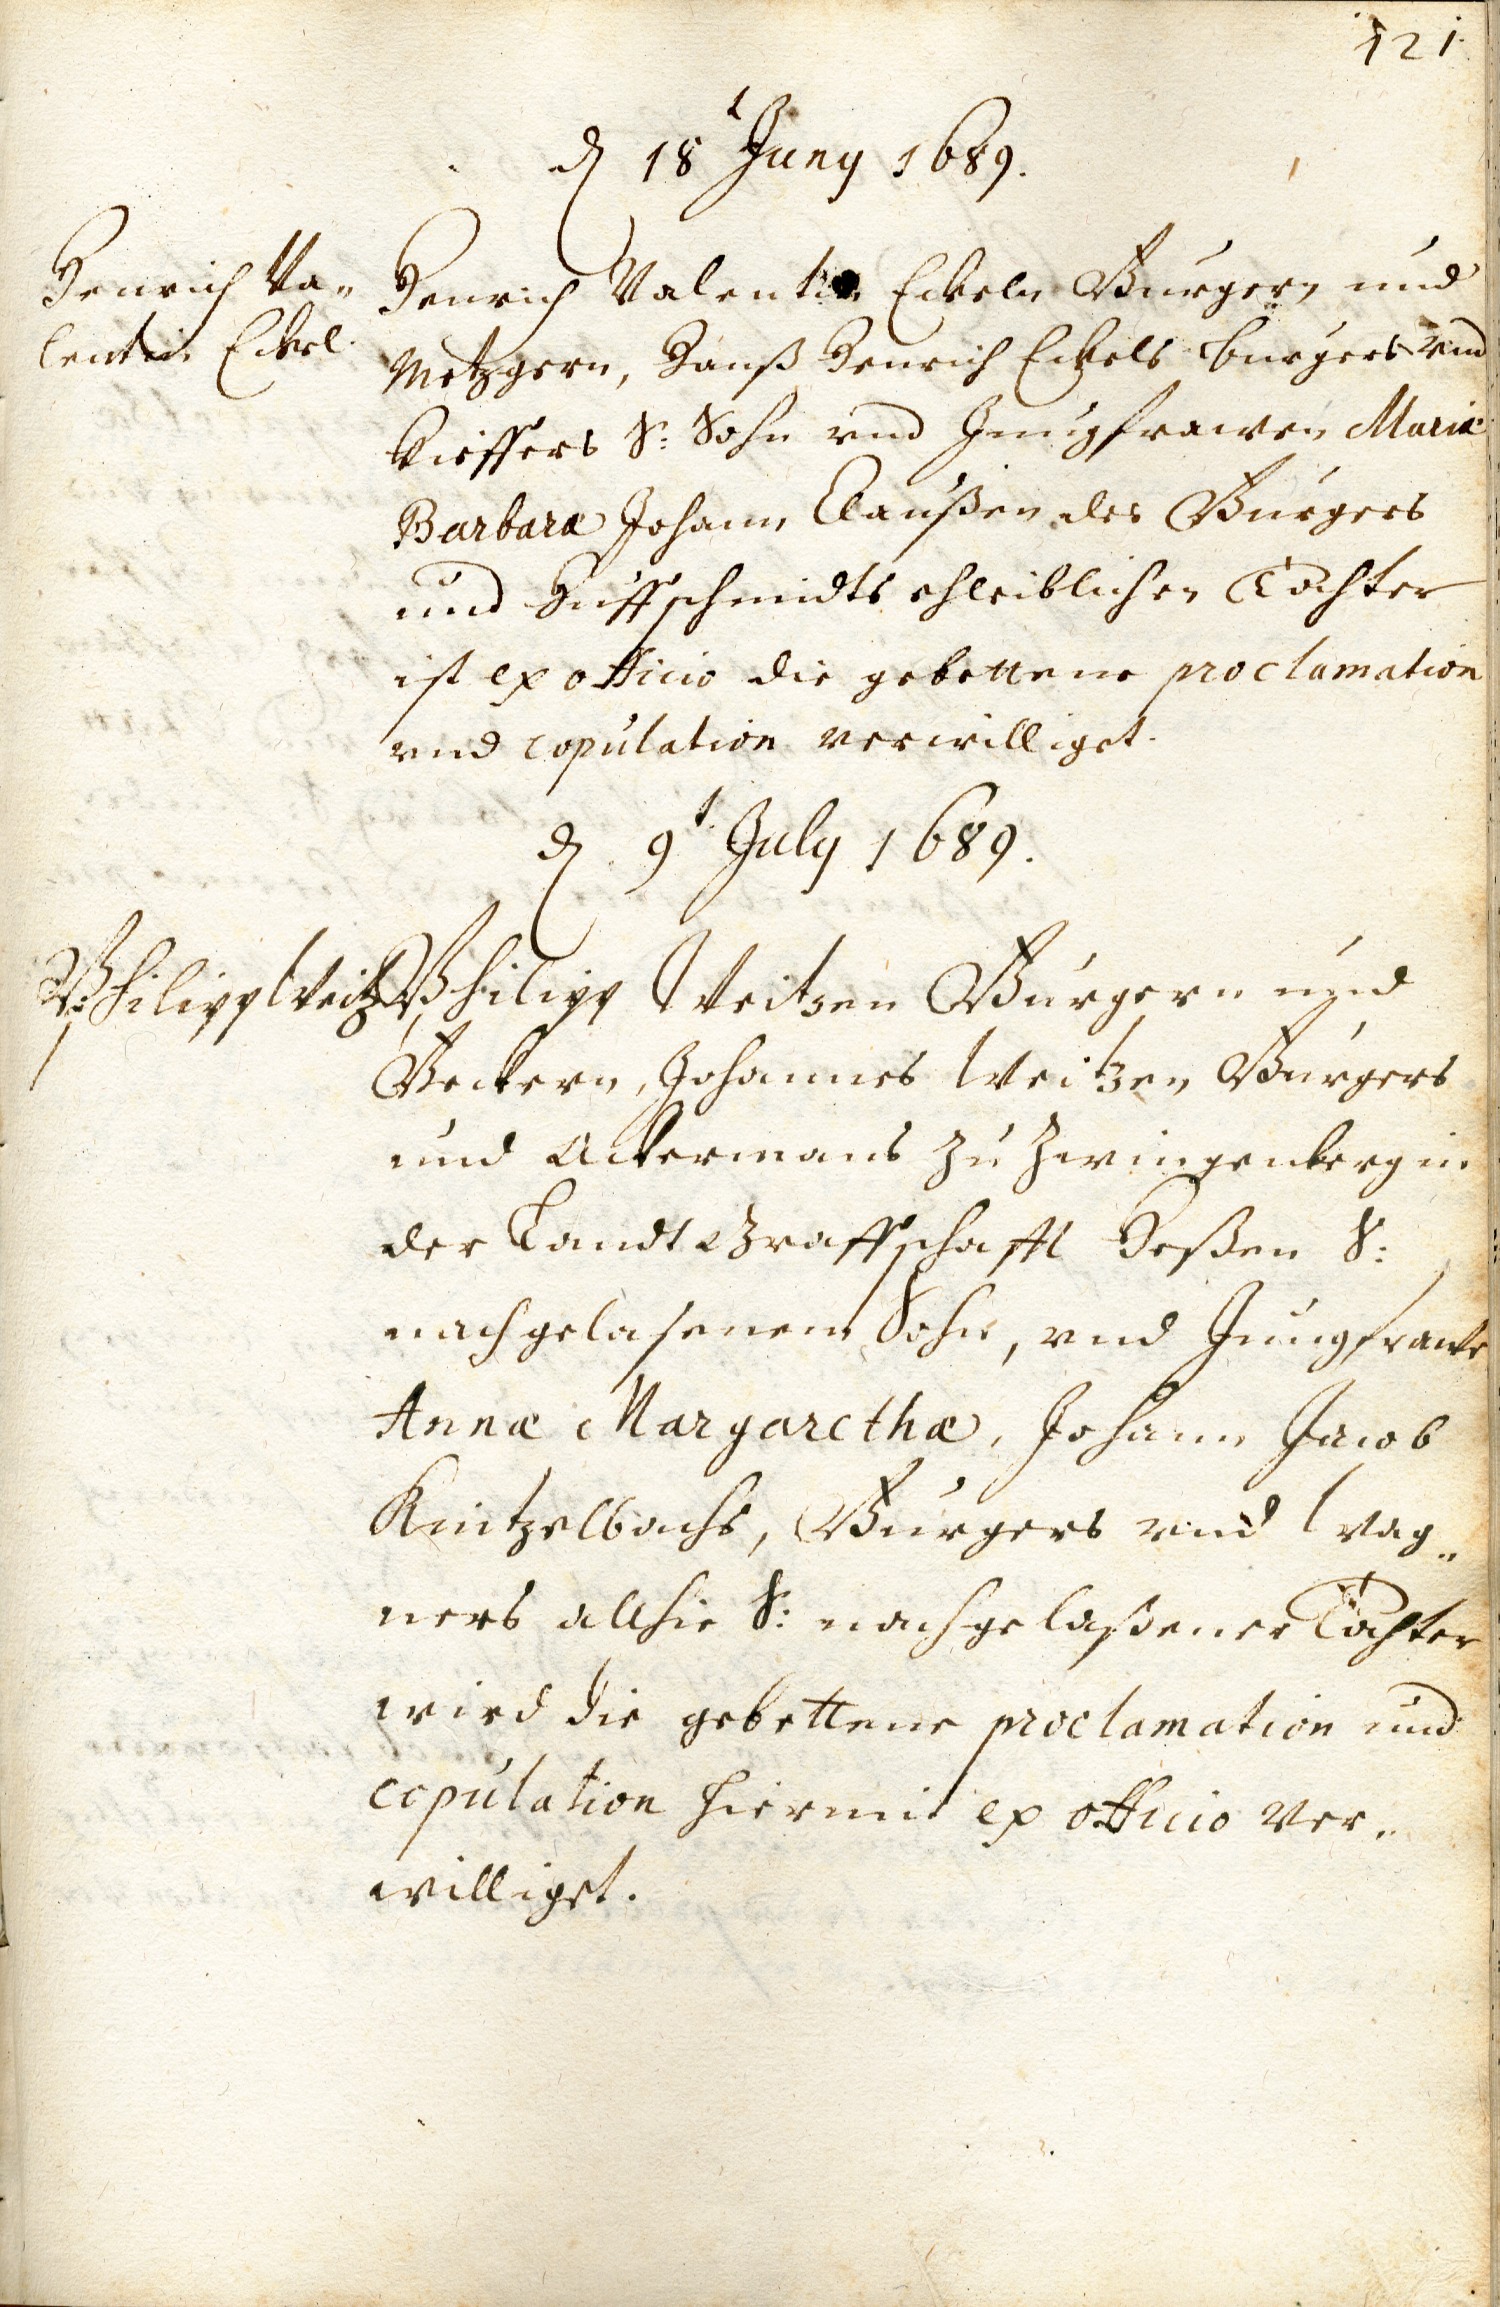 121.
d 18t Juny 1689.
Henrich Va„
lentin Eckel.
Henrich Valentin Eckeln Burgern und
Metzgern, Hanß Henrich Eckels burgers vnd
Kieffers S: Sohn vnd Jungfrawen Mariæ
Barbaræ Johann Claußen des Burgers
und Huffschmidts ehleiblichen Tochter
ist ex officio die gebettene proclamation
vnd copulation verwilliget.
d 9t July 1689.
Philipp Weitz
Philipp Weitzen Burgern und
Beckern, Johannes Weitzen Burgers
und Ackermans zu Zwingenberg in
der Landt Graffschafft Heßen S:
nachgelasenem Sohn, vnd Jungfrawe
Annæ Margarethæ, Johann Jacob
Kintzelbachs, Burgers vnd Wag„
ners allhie S: nachgelaßener Tochter
wird die gebettene proclamation und
copulation hiermit ex officio ver„
williget.